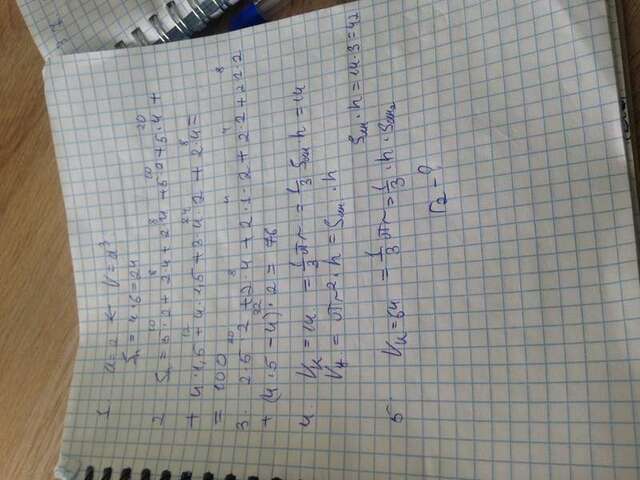 1 a=2 ← V=a³
Sₙ = 4·6=24
2. Sₙ = 5·2 + 2·4 + 2·4 + 5·2 + 5·4 +
+ 4·1,5 + 4·1,5 + 3·4·2 + 2·4 =
= 100
3. 2·5·2 + 2·4 + 2·1·2 + 2·2 + 2·2·2
+ (4·5-4)·2 = 76
4. Vк = 14 = 1/3 πr = 1/3 Sосн·h = 14
Vц = πr²·h = Sосн·h
Sосн·h = 14·3 = 42
5. Vк = 64 = 1/3 πr = 1/3·h·Sосн₂
r₂ - ?